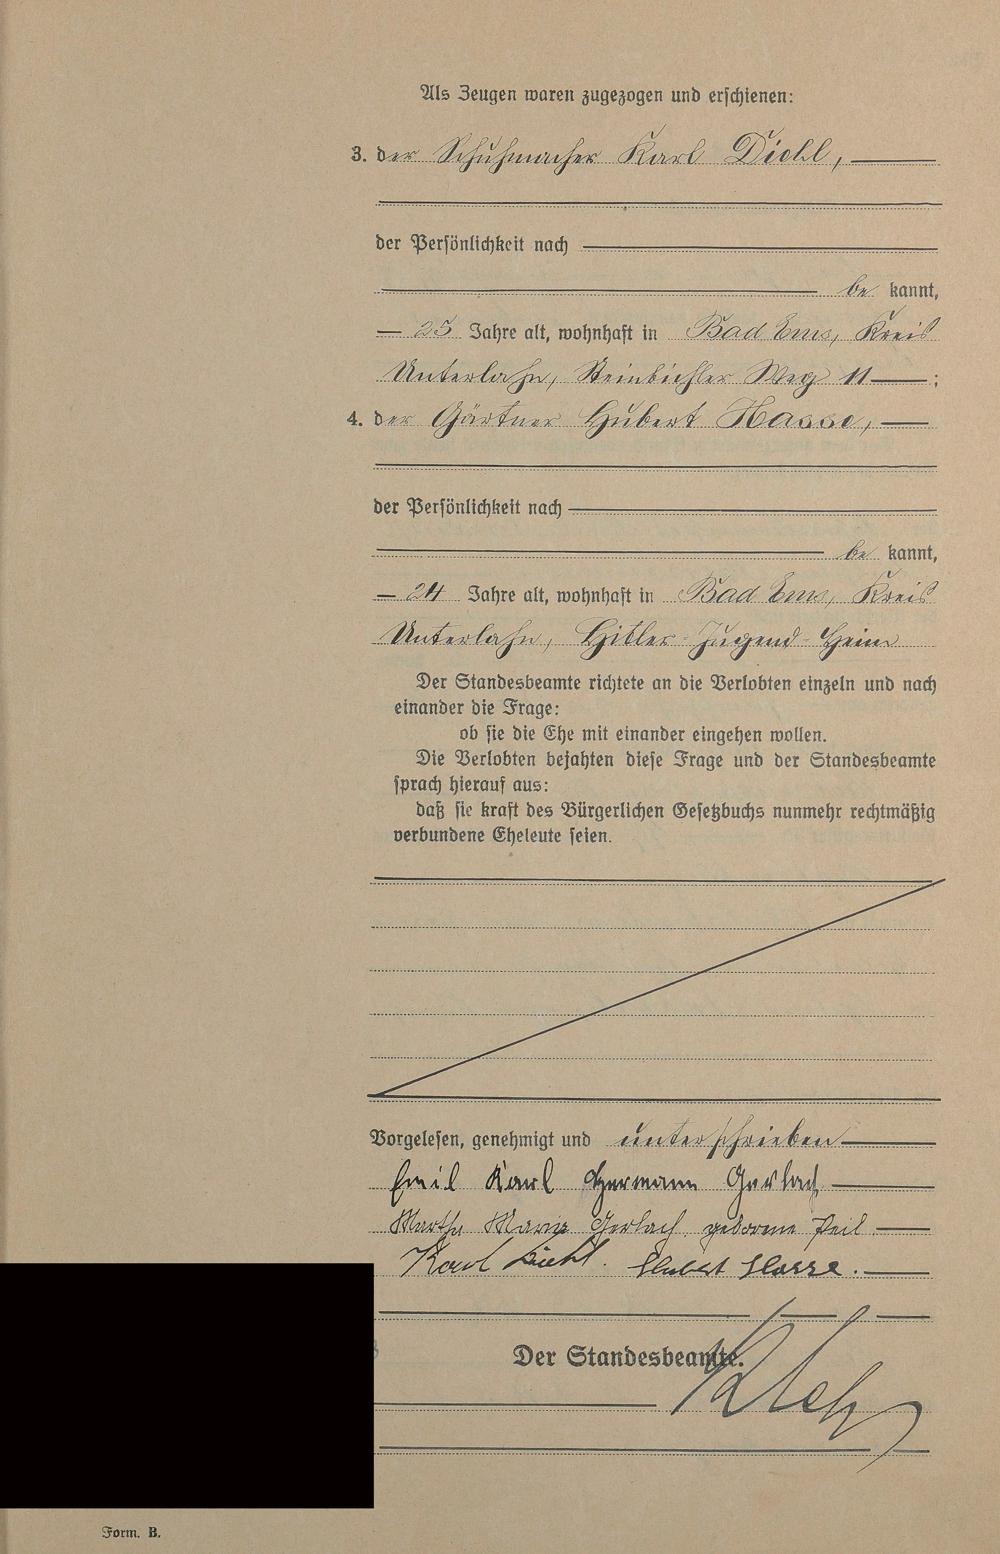 Als Zeugen waren zugezogen und erschienen:
3. der Schuhmacher Karl Diehl,
der Persönlichkeit nach
be kannt,
25 Jahre alt, wohnhaft in Bad Ems, Kreis
Unterlahn, Steinbichler Weg 11 ;
4. der Gärtner Hubert Hasse,
der Persönlichkeit nach
be kannt,
24 Jahre alt, wohnhaft in Bad Ems, Kreis
Unterlahn, Hitler-Jugend-Heim
Der Standesbeamte richtete an die Verlobten einzeln und nach
einander die Frage:
ob sie die Ehe mit einander eingehen wollen.
Die Verlobten bejahten diese Frage und der Standesbeamte
sprach hierauf aus:
daß sie kraft des Bürgerlichen Gesetzbuchs nunmehr rechtmäßig
verbundene Eheleute seien.
Vorgelesen, genehmigt und unterschrieben
Emil Karl Hermann Gerlach
Martha Maria Gerlach geborene Peil
Karl Diehl. Hubert Hasse.
Der Standesbeamte.
Form. B.